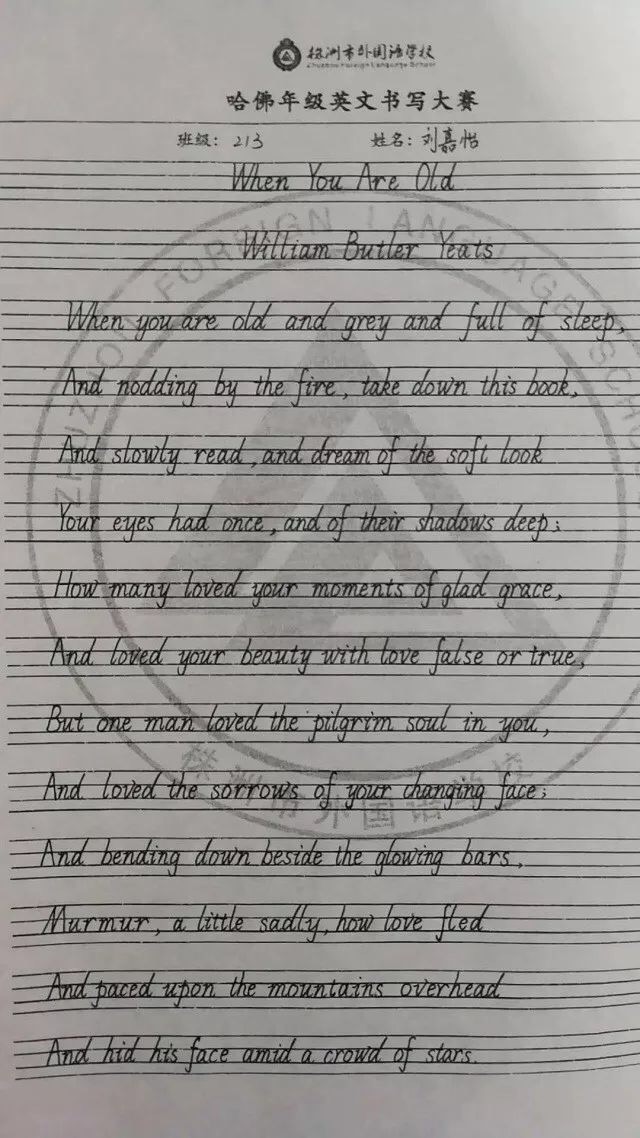 株洲市外国语学校
Zhuzhou Foreign Language School
哈佛年级英文书写大赛
班级：213 姓名：刘嘉怡
When You Are Old
William Butler Yeats
When you are old and grey and full of sleep,
And nodding by the fire, take down this book,
And slowly read, and dream of the soft look
Your eyes had once, and of their shadows deep;
How many loved your moments of glad grace,
And loved your beauty with love false or true,
But one man loved the pilgrim soul in you,
And loved the sorrows of your changing face;
And bending down beside the glowing bars,
Murmur, a little sadly, how love fled
And paced upon the mountains overhead
And hid his face amid a crowd of stars.
ZHUZHOU FOREIGN LANGUAGE SCHOOL
株洲市外国语学校